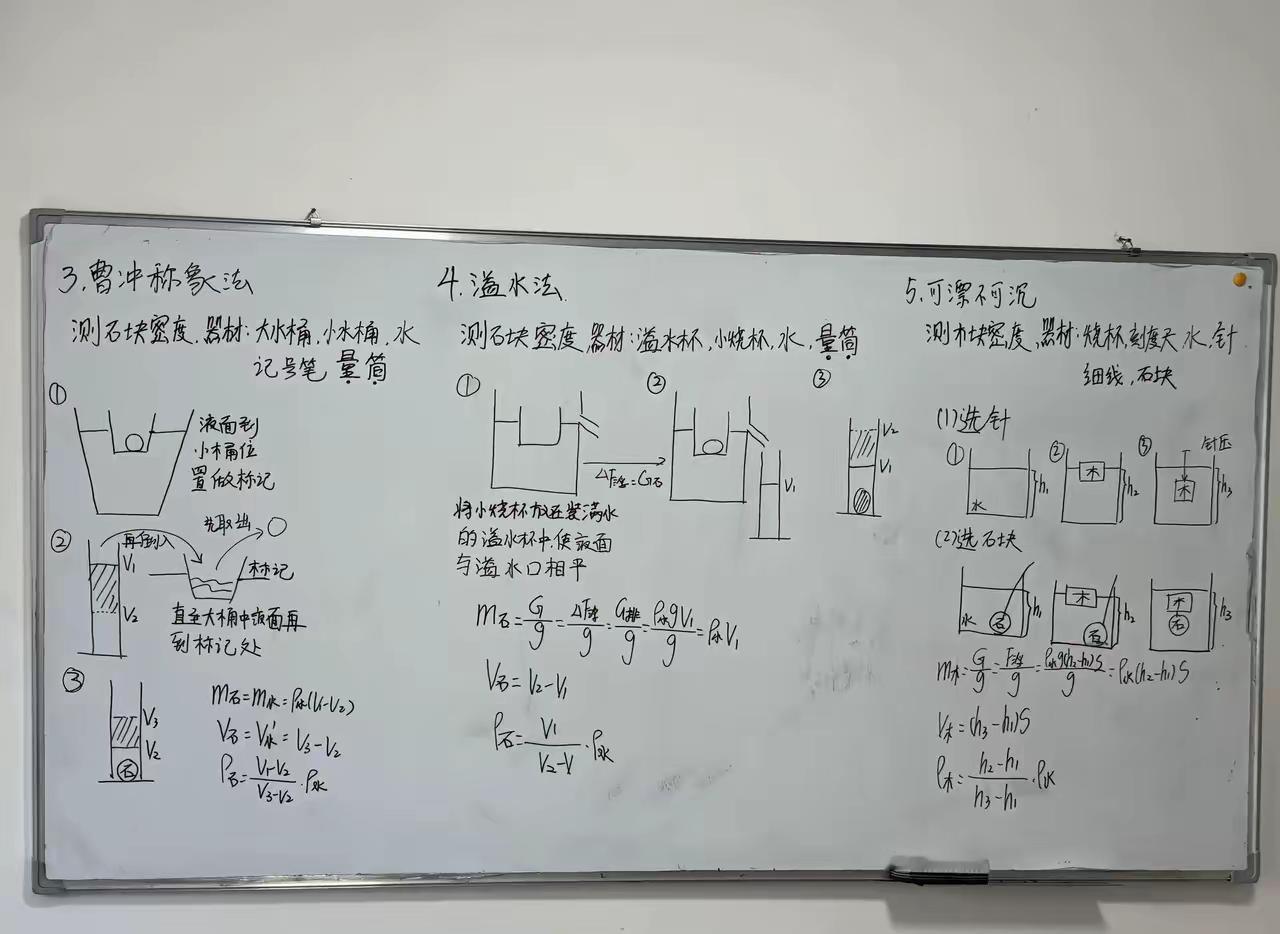 3.曹冲称象法
测石块密度.器材:大水桶,小水桶,水
记号笔 量筒
①
液面到
小桶位
置做标记
②
再倒入
先取出
V₁
V₂
标记
直至大桶中液面再
到标记处
③
V₃
V₂
石
m石=m水=ρ水(V₁-V₂)
V石=V水'=V₃-V₂
ρ石=\frac{V₁-V₂}{V₃-V₂}·ρ水
4.溢水法.
测石块密度,器材:溢水杯,小烧杯,水,量筒
①
②
③
ΔF浮=G石
V₁
V₂
V₁
将小烧杯放进装满水
的溢水杯中.使液面
与溢水口相平
m石=\frac{G}{g}=\frac{ΔF浮}{g}=\frac{G排}{g}=\frac{ρ水gV₁}{g}=ρ水V₁
V石=V₂-V₁
ρ石=\frac{V₁}{V₂-V₁}·ρ水
5.可漂不可沉
测木块密度,器材:烧杯,刻度尺 水,针
细线,石块
(1)选针
①
②
③
针压
水
h₁
木
h₂
木
h₃
(2)选石块
水
石
h₁
木
石
h₂
木
石
h₃
m木=\frac{G}{g}=\frac{F浮}{g}=\frac{ρ水g(h₂-h₁)S}{g}=ρ水(h₂-h₁)S
V木=(h₃-h₁)S
ρ木=\frac{h₂-h₁}{h₃-h₁}·ρ水